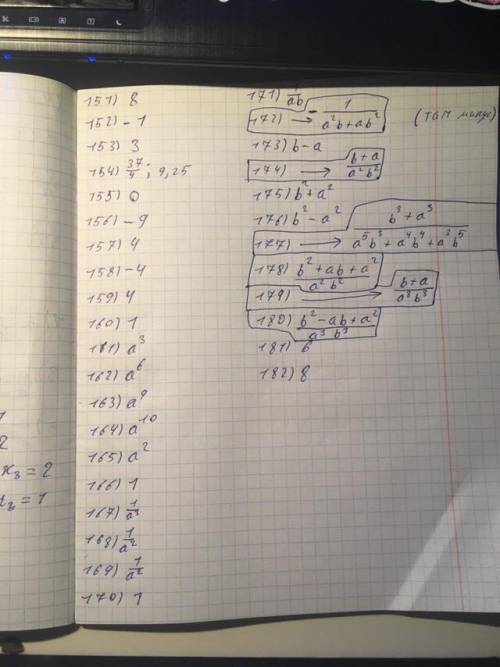 1
2
x₃ = 2
x₃ = 1
151) 8
152) -1
153) 3
154) 37/4 ; 9,25
155) 0
156) -9
157) 4
158) -4
159) 4
160) 1
161) a³
162) a⁶
163) a⁹
164) a¹⁰
165) a²
166) 1
167) 1/a³
168) 1/a²
169) 1/a²
170) 1
171) 1/ab
172) → - 1/(a²b+ab²) (там минус)
173) b-a
174) → (b+a)/(a²b²)
175) b²+a²
176) b²-a²
177) → (b³+a³)/(a⁵b³+a⁴b⁴+a³b⁵)
178) (b²+ab+a²)/(a²b²)
179) → (b+a)/(a³b³)
180) (b²-ab+a²)/(a³b³)
181) 6
182) 8